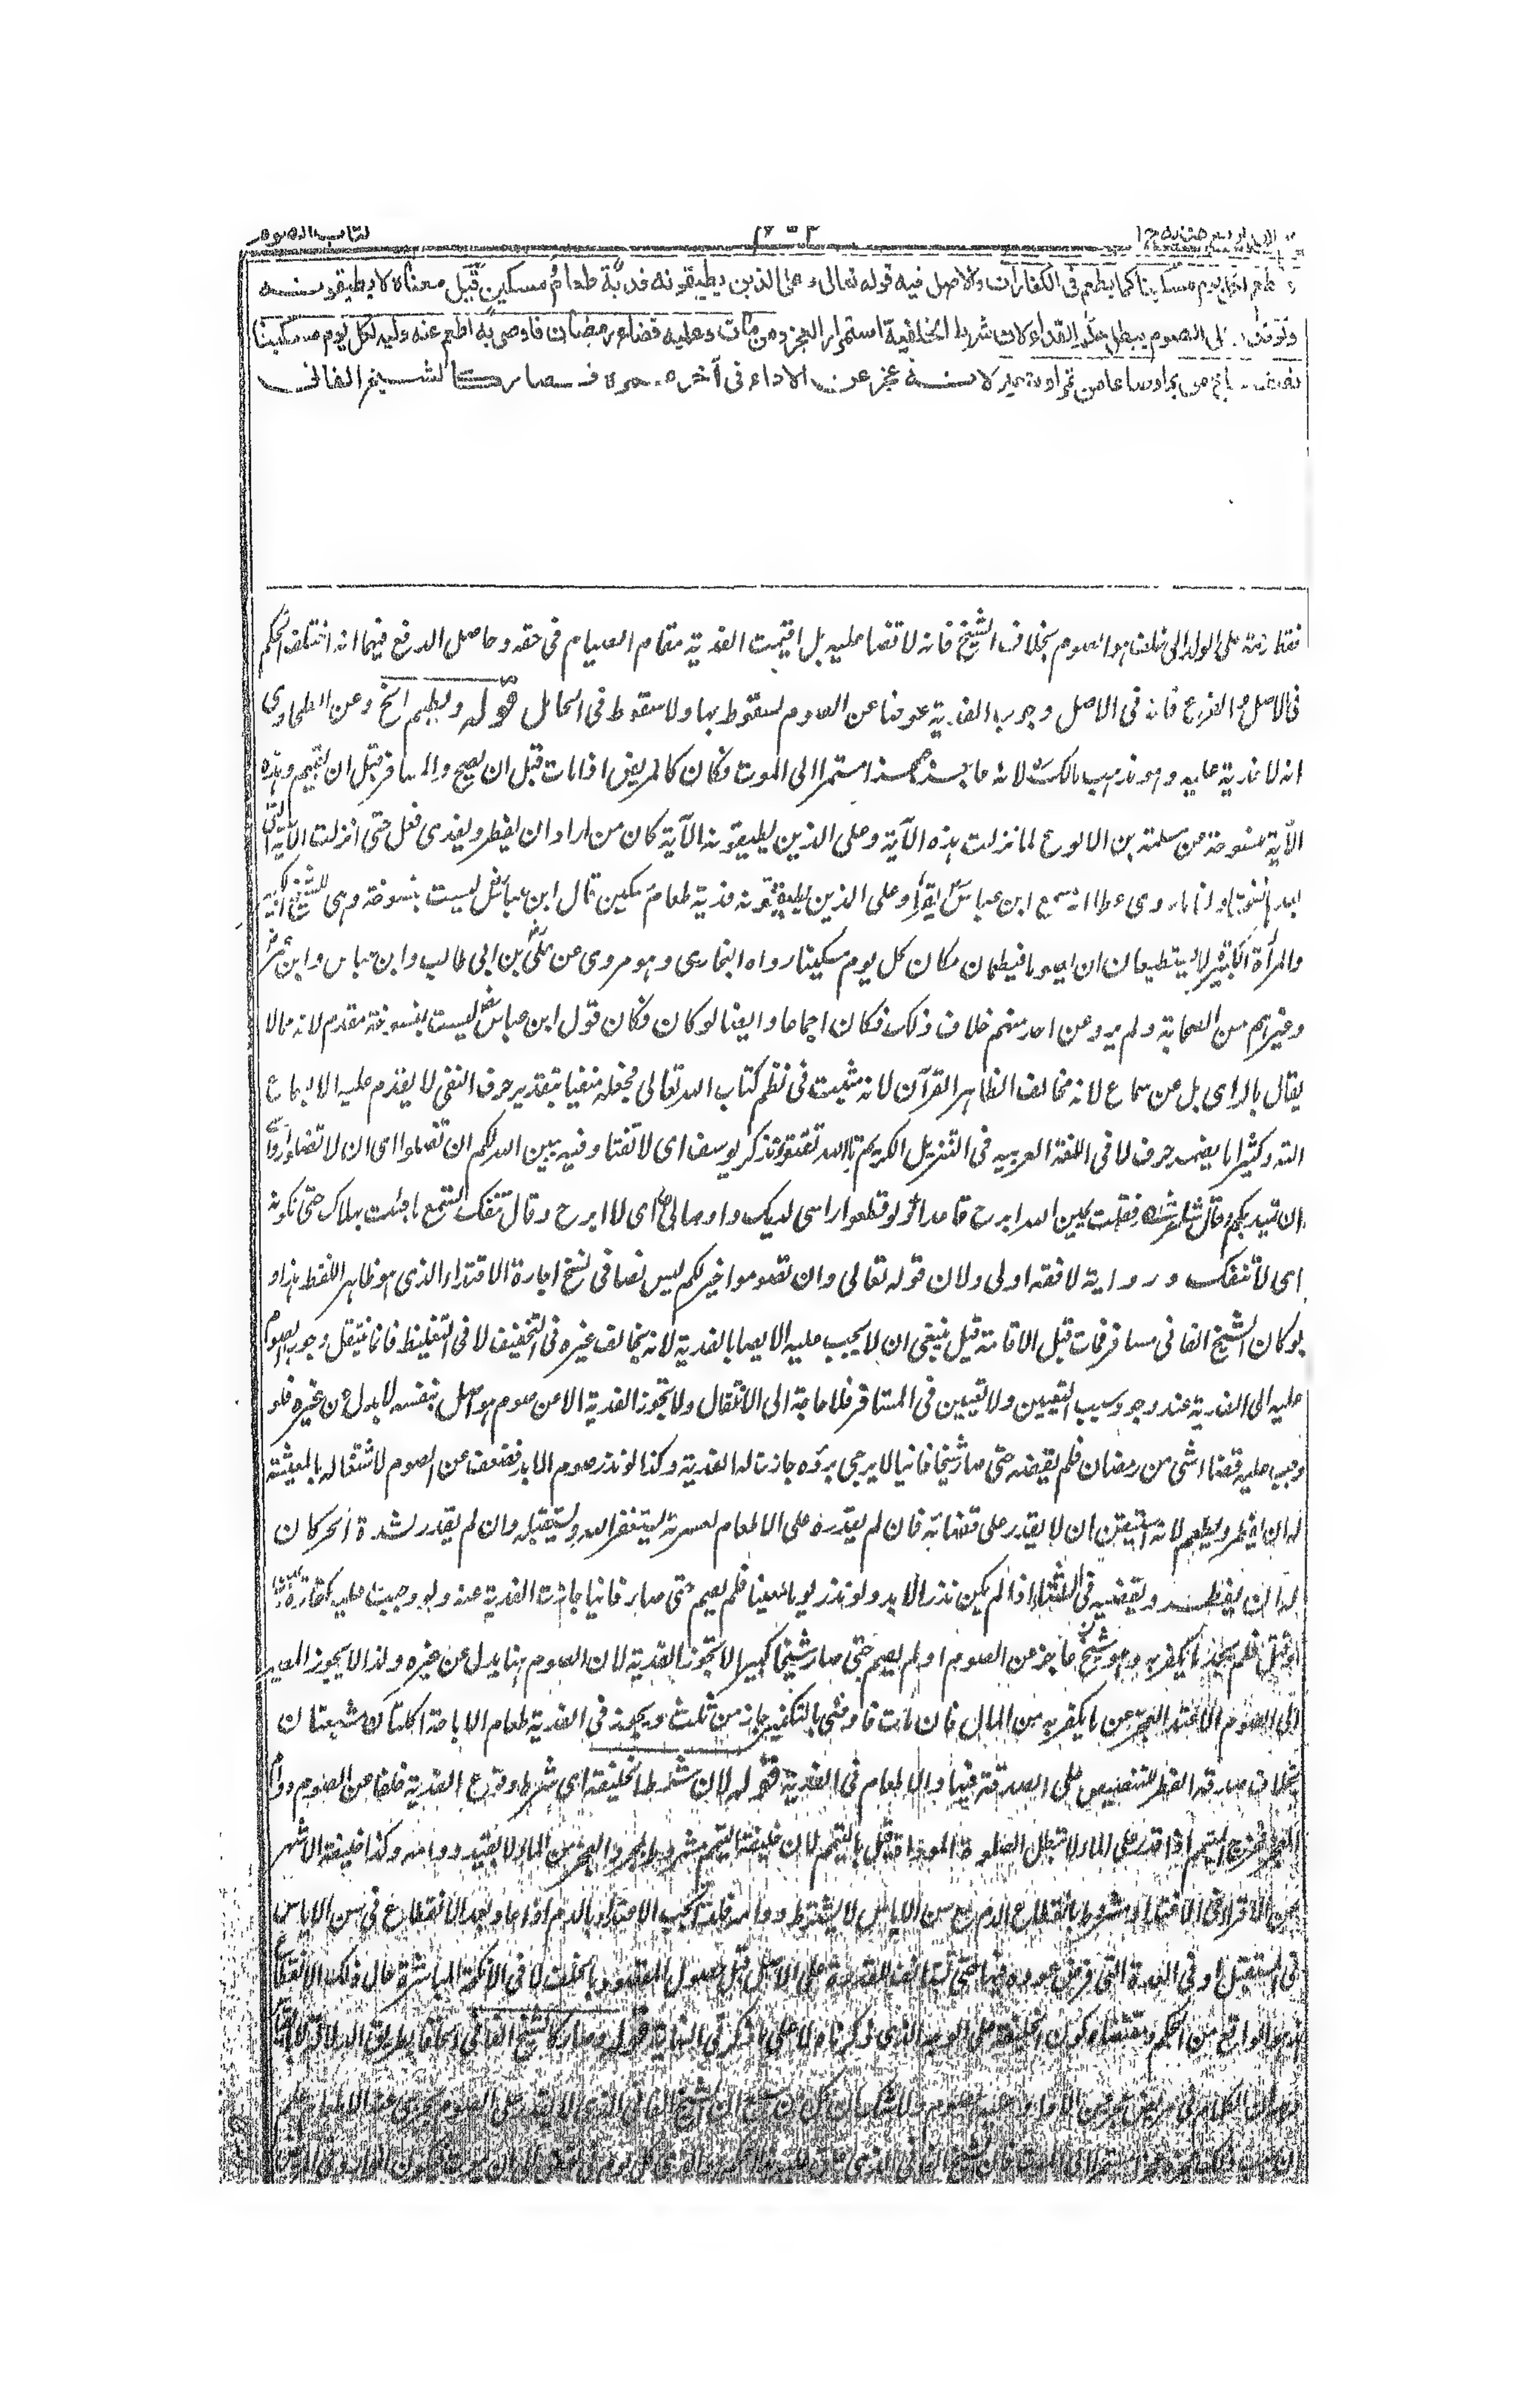 كتاب الصوم
ويطعم لكل يوم مسكينا كما يطعم في الكفارات والاصل فيه قوله تعالى وعلى الذين يطيقونه فدية طعام مسكين قيل معناه لا يطيقونه
ولو قدر على الصوم يبطل حكم الفداء لان شرط الخلفية استمرار العجز ومن مات وعليه قضاء رمضان فاوصى به اطعم عنه وليه لكل يوم مسكينا
نصف صاع من بر او صاعا من تمر او شعير لانه عجز عن الاداء في آخر عمره فصار كالشيخ الفاني
على الولد الى خلف هو الصوم بخلاف الشيخ فانه لا قضا عليه بل اقيمت الفدية مقام الصيام في حقه وحاصل الدفع فيهما انه اختلف الحكم
في الاصل والفرع فانه في الاصل وجوب الفدية عوضا عن الصوم لسقوط بها ولا سقوط في الحامل قوله ويطعم الخ وعن الطحاوي
انه لا فدية عليه وهو مذهب مالك لانه عاجز عجزا مستمرا الى الموت فكان كالمريض اذا مات قبل ان يصح والمسافر قبل ان يقيم وهذه
الآية منسوخة عن سلمة بن الاكوع لما نزلت هذه الآية وعلى الذين يطيقونه الآية كان من اراد ان يفطر ويفدي فعل حتى انزلت الآية التي
بعدها نسختها ولنا ما روى عطا انه سمع ابن عباس يقرأ وعلى الذين يطيقونه فدية طعام مسكين قال ابن عباس ليست بمنسوخة وهي للشيخ الكبير
والمرأة الكبيرة لا يستطيعان ان يصوما فيطعمان مكان كل يوم مسكينا رواه البخاري وهو مروي عن علي بن ابي طالب وابن عباس وابن عمر
وغيرهم من الصحابة ولم يرو عن احد منهم خلاف ذلك فكان اجماعا وايضا لو كان فكان قول ابن عباس ليست بمنسوخة مقدم لانه مما لا
يقال بالراي بل عن سماع لانه مخالف لظاهر القرآن لانه مثبت في نظم كتاب الله تعالى فجعله منفيا بتقدير حرف النفي لا يقدم عليه الا بسماع
البتة وكثيرا ما يضمر حرف لا في اللغة العربيه في التنزيل الكريم تالله تفتؤ تذكر يوسف اى لا تفتا وفيه يبين الله لكم ان تضلوا اى ان لا تضلوا رواسي
ان تميد بكم وقال الشاعر فقلت يمين الله ابرح قاعدا ولو قطعوا راسي لديك واوصالي اى لا ابرح وقال تنفك تسمع ما حييت بهالك حتى تكونه
اى لا تنفك ورواية الافقه اولى ولان قوله تعالى وان تصوموا خير لكم ليس نصا في نسخ اجازة الافتداء الذي هو ظاهر اللفظ هذا و
لو كان الشيخ الفاني مسافر فمات قبل الاقامة قيل ينبغي ان لا يجب عليه الايصا بالفدية لانه يخالف غيره في التخفيف لا في التغليظ فانما ينتقل وجوب الصوم
عليه الى الفدية عند وجود سبب التعيين ولا تعيين في المسافر فلا حاجة الى الانتقال ولا تجوز الفدية الا عن صوم هو اصل بنفسه لا بدل عن غيره فلو
وجب عليه قضاء شئ من رمضان فلم يقضه حتى صار شيخا فانيا لا يرجى برؤه جازت له الفدية وكذا لو نذر صوم الابد فضعف عن الصوم لاشتغاله بالمعيشة
له ان يفطر ويطعم لانه استيقن ان لا يقدر على قضائه فان لم يقدر على الاطعام لعسرته يستغفر الله ويستقيله وان لم يقدر لشدة الحر كان
له ان يفطر ويقضيه في الشتاء اذا لم يكن نذر الابد ولو نذر يوما معينا فلم يصم حتى صار فانيا جازت الفدية عنه ولو وجبت عليه كفارة يمين
او قتل فلم يجد ما يكفر به وهو شيخ عاجز عن الصوم او لم يصم حتى صار شيخا كبيرا لا تجوز الفدية لان الصوم هنا بدل عن غيره ولذا لا يجوز المصير
الى الصوم الا عند العجز عن ما يكفر به من المال فان مات فاوصى بالتكفير جاز من ثلثه ويجوز في الفدية طعام الاباحة اكلتان مشبعتان
بخلاف صدقة الفطر للتنصيص على الصدقة فيها والاطعام في الفدية قوله لان شرط الخليفة اى شرط وقوع الفدية خلفا عن الصوم دوام
العجز فخرج المتيمم اذا قدر على الماء لا تبطل الصلوة المؤداة قبل بالتيمم لان خليفة التيمم مشروط بمجرد العجز عن الماء لا بقيد دوامه وكذا خليفة الاشهر
عن الاقراء في الاعتداد مشروط بانقطاع الدم مع سن الاياس لا يشترط دوامه فلا يجب الاعتداد بالدم اذا عاد بعد الانقطاع في سن الاياس
في المستقبل او في العدة التي فرض عوده فيها حتى تستانف للقدرة على الاصل قبل حصول المقصود بالخلف لا في الانكحة المباشرة حال ذلك الانقطاع
قوله وصار كالشيخ الفاني